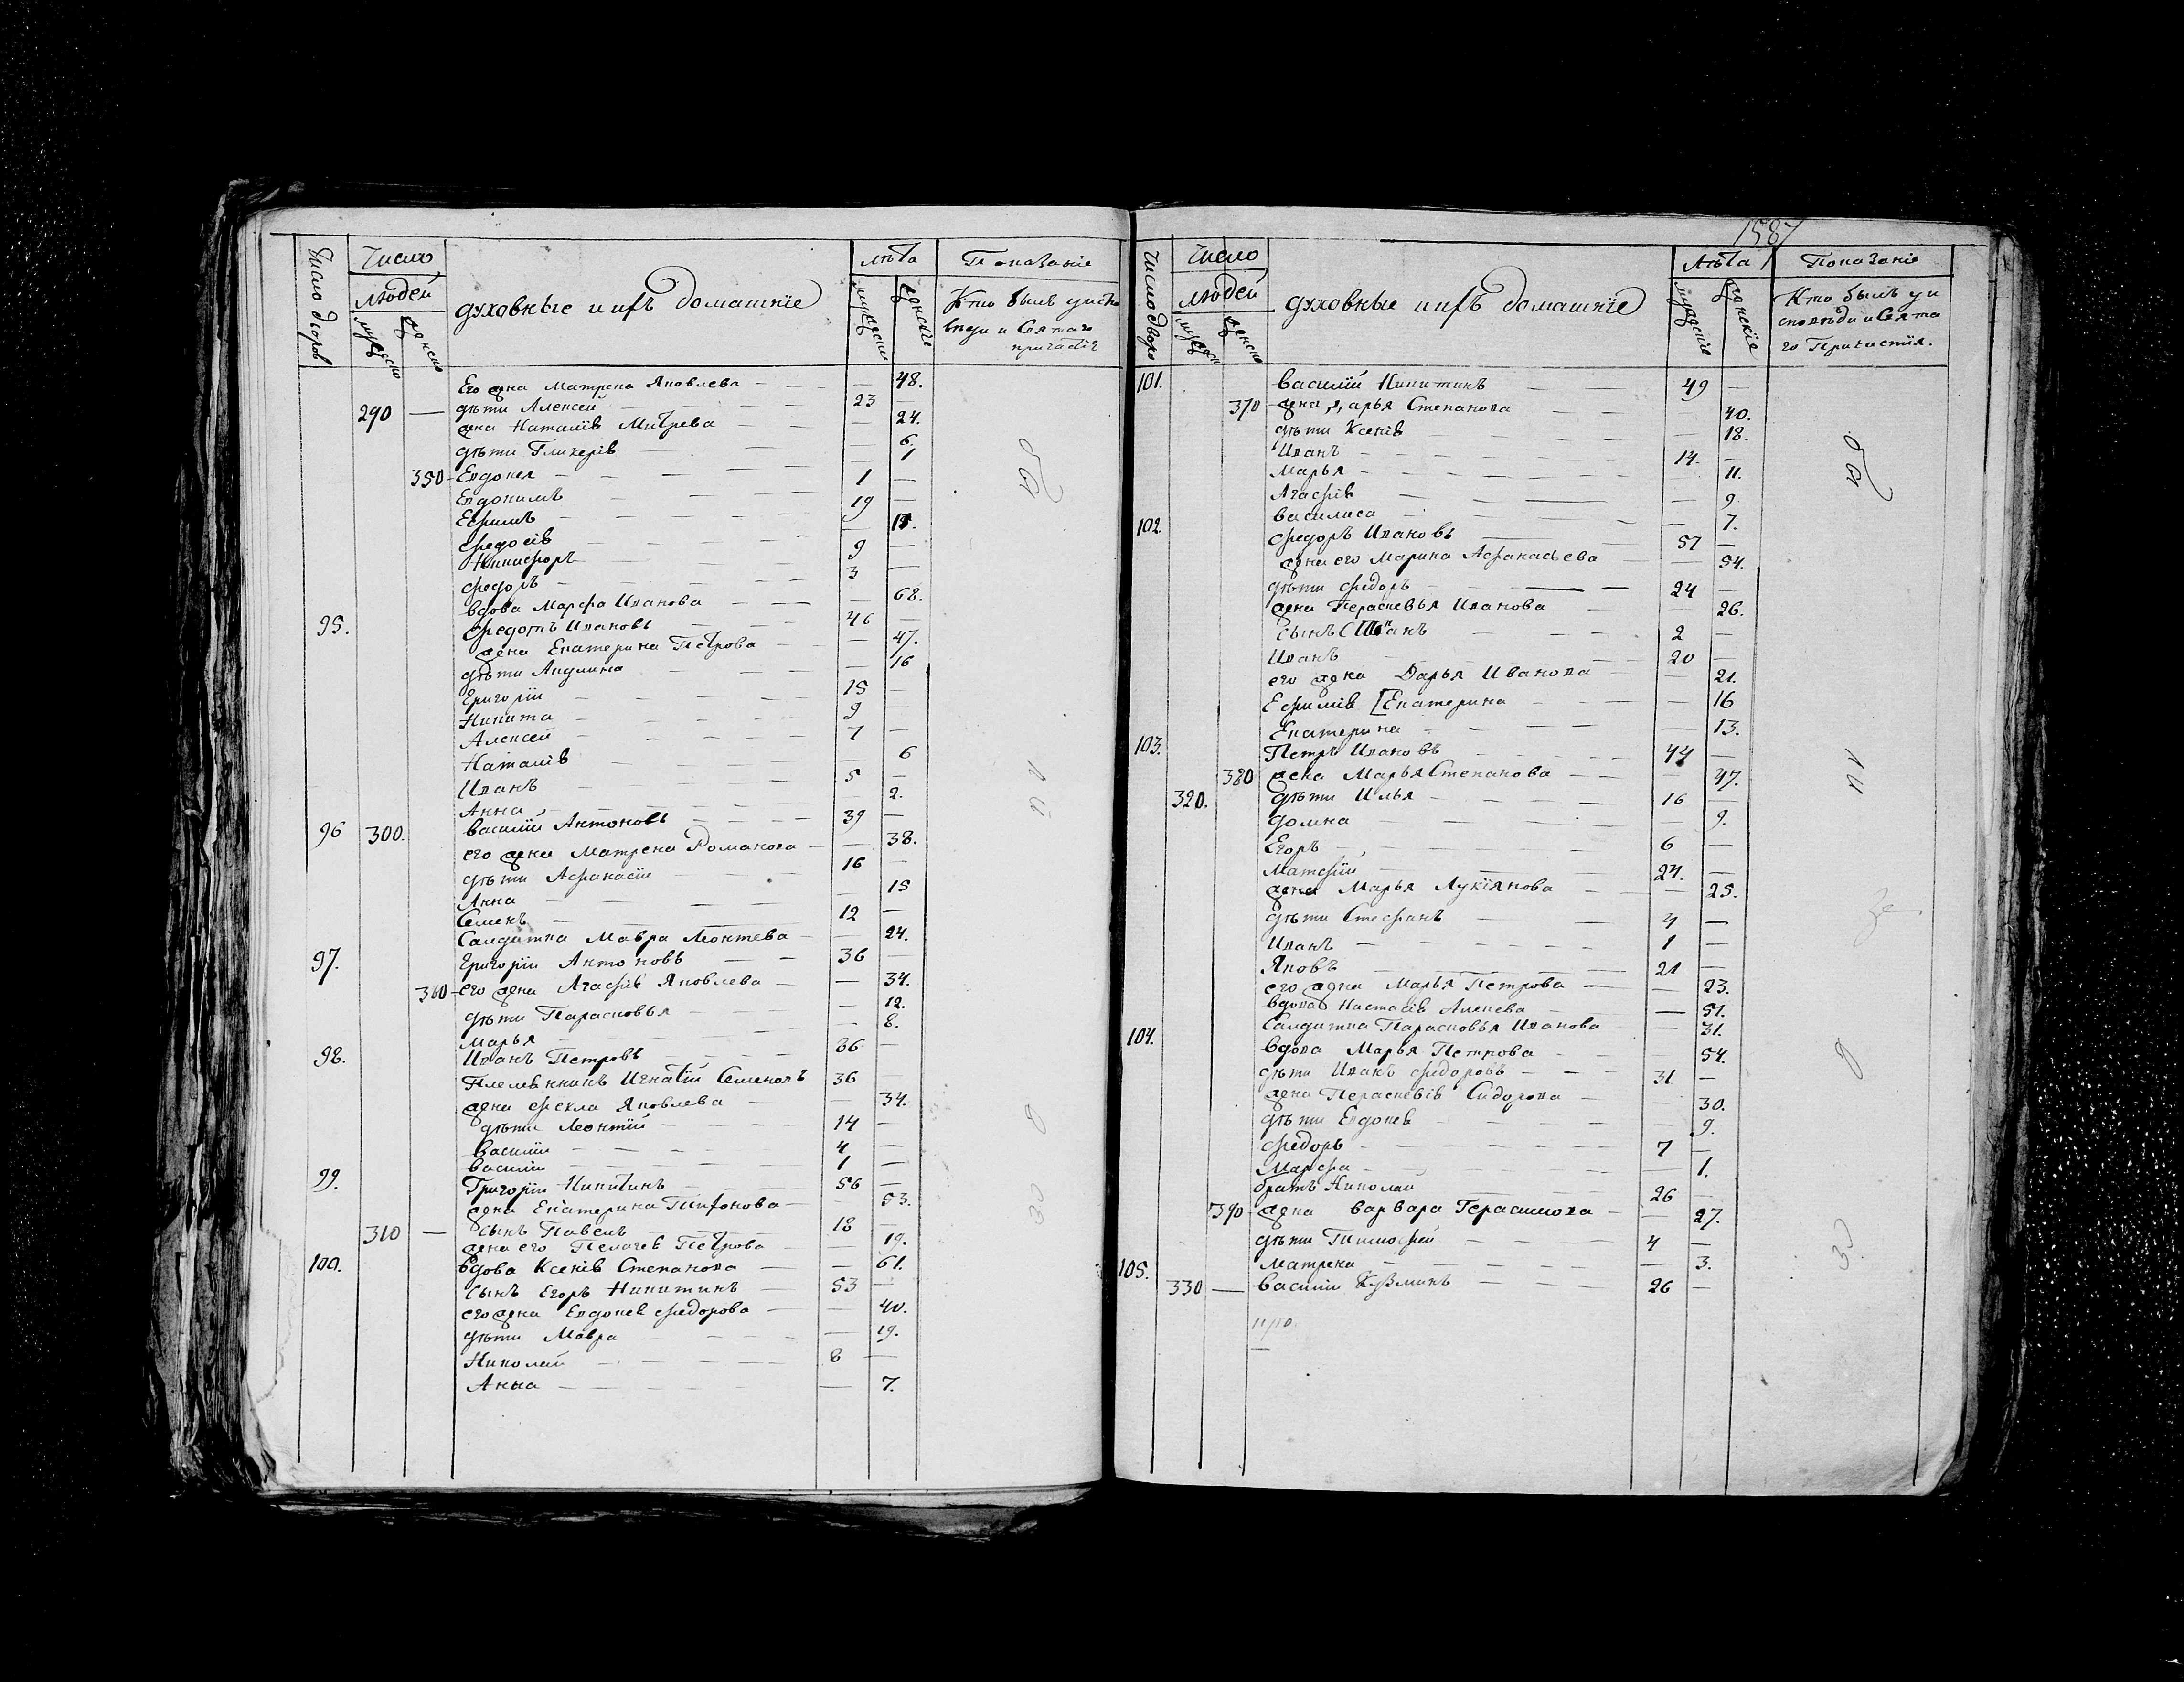 Число дворов
Число
людей
мужеско
женско
духовные и ихъ домашніе
лѣта
мужески
женскіе
Показаніе
Кто былъ уиспо
вѣди и Святаго
причастія
Его жена Матрена Яковлева — — — 48.
290 — дѣти Алексей — — 23 —
жена Наталіѣ Митрева — — — 24.
дѣти Гликеріѣ — — 6.
350 - Евдокея — — 1
Евдокимъ — — 1 —
Ефимъ — — 19 —
Федосіѣ — — 15.
Никифоръ — — 9 —
Федоръ — — 3 —
вдова Марфа Иванова — — — 68.
95. Федотъ Ивановъ — — 46 —
жена Екатерина Петрова — — 47.
дѣти Акулина — — 16
Григорій — — 15 —
Никита — — 9 —
Алексей — — 7 —
Наталіѣ — — 6
Иванъ — — 5 —
Анна — — 2.
96 300. Василій Антоновъ — — 39 —
его жена Матрена Романова — — 38.
дѣти Афанасій — — 16 —
Анна — — 15
Семенъ — — 12 —
Салдатка Мавра Леонтева — — 24.
97. Григорій Антоновъ — — 36 —
360 - его жена Агафіѣ Яковлева — — 34.
дѣти Парасковья — — 12.
Марья — — 8.
98. Иванъ Петровъ — — 86 —
Племянникъ Игнатій Семеновъ 36
жена Фекла Яковлева — — 34.
дѣти Леонтій — — 14 —
Василій — — 4 —
Василій — — 1 —
99. Григорій Никитинъ — — 56 —
жена Екатерина Тихонова — — 53.
310 — сынъ Павелъ — — 18 —
жена его Пелагеѣ Петрова — — 19.
100. вдова Ксеніѣ Степанова — — 61.
сынъ Егоръ Никитинъ — 53 —
его жена Евдокеѣ Федорова — — 40.
дѣти Мавра — — 19.
Николай — — 8 —
Анна — — 7.
1587
Число дворо
Число
людей
мужеско
женско
духовные и ихъ домашніе
Лѣта
мужескіе
женскіе
Показаніе
Кто былъ уи
сповѣди и Свята
го Причастія.
101. Василій Никитинъ — 49 —
370 - жена Дарья Степанова — — 40.
дѣти Ксеніѣ — — 18.
Иванъ — — 14. —
Марья — — 11.
Агафіѣ — — 9
Василиса — — 7.
102. Федоръ Ивановъ — — 57 —
жена его Марина Афанасьева — — 54.
дѣти Федоръ — — 24 —
жена Перасковья Иванова — — 26.
сынъ Степанъ — — 2 —
Иванъ — — 20 —
его жена Дарья Иванова — — 21.
Ефиміѣ [Екатерина — — 16
Екатерина — — 13.
103. Петръ Ивановъ — — 44 —
380 жена Марья Степанова — — 47.
320. дѣти Илья — — 16 —
Домна — — 9.
Егоръ — — 6 —
Матфій — — 24. —
жена Марья Лукіянова — — 25.
дѣти Стефанъ — — 4 —
Иванъ — — 1 —
Яковъ — — 21 —
его жена Марья Петрова — — 23.
вдова Настасіѣ Алексева — — 51.
Салдатка Парасковья Иванова — — 31.
104. вдова Марья Петрова — — 54.
дѣти Иванъ Федоровъ — — 31 —
жена Перасковіѣ Сидорова — — 30.
дѣти Евдокеѣ — — 9.
Федоръ — — 7 —
Марфа — — 1.
братъ Николай — — 26 —
390 - жена Варвара Герасимова — — 27.
дѣти Тимофей — — 4 —
Матрена — — 3.
105. 330 — Василій Кузминъ — — 26 —